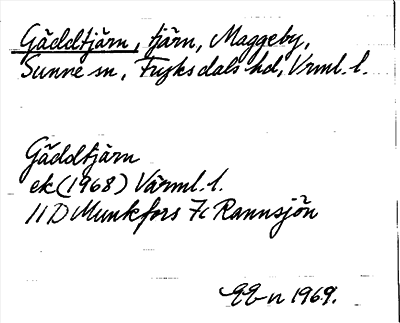 Gäddtjärn, tjärn, Maggeby,
Sunne sn, Fryksdals hd, Vrml. l.
Gäddtjärn
ek (1968) Värml. l.
11D Munkfors 7c Rannsjön
1969.